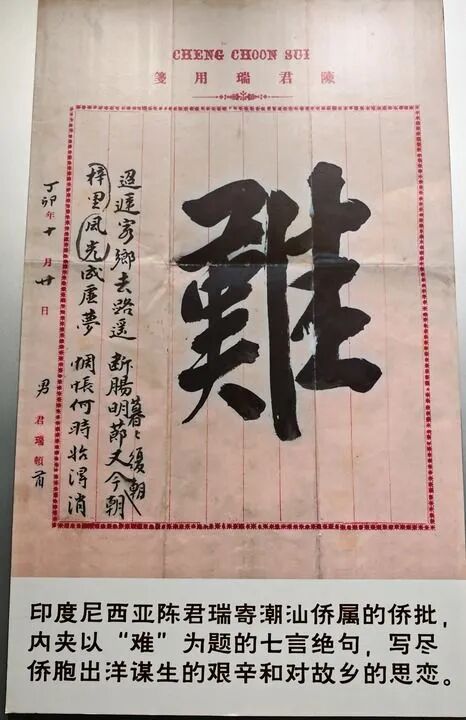 CHENG CHOON SUI
陳君瑞用箋
難
迢遞客鄉去路遥 斷腸明節又今朝
暮々復朝
梓里風光成虛夢 惆悵何時始得消
丁卯年十月廿日 男 君瑞頓首
印度尼西亚陈君瑞寄潮汕侨属的侨批，
内夹以“难”为题的七言绝句，写尽
侨胞出洋谋生的艰辛和对故乡的思恋。